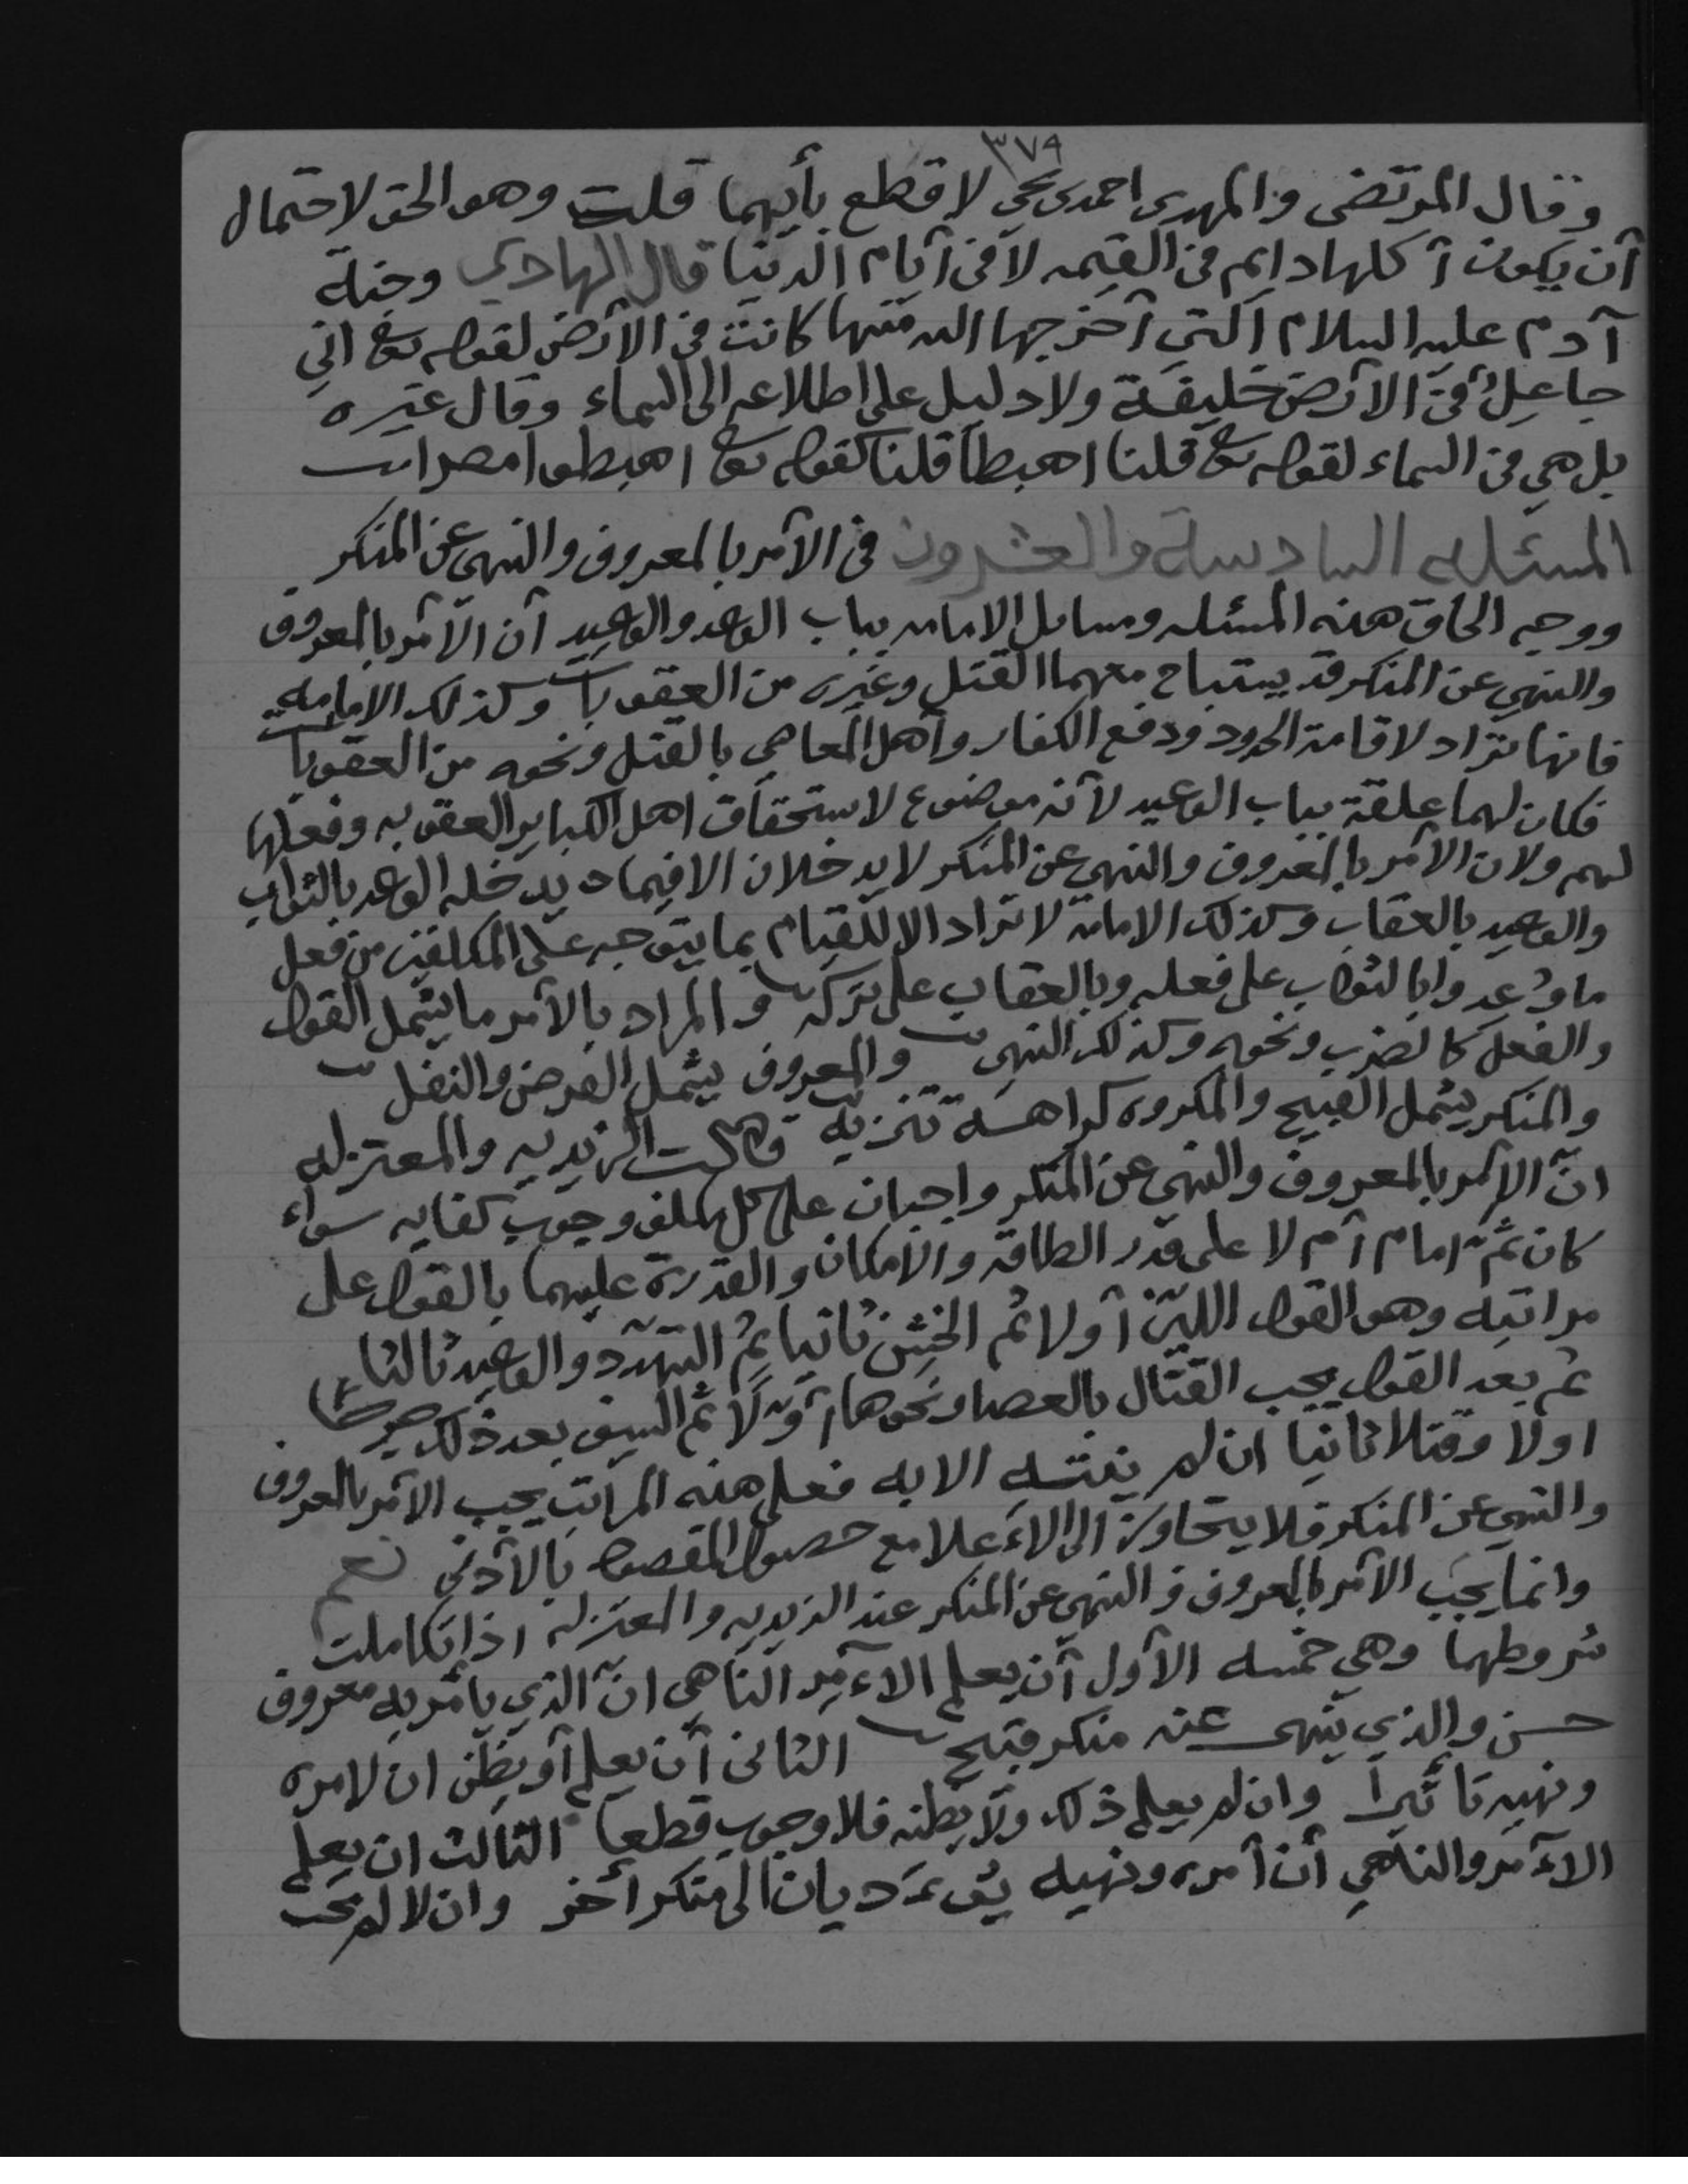 ٣٧٩
وقال المرتضى والمهدي احمد بن يحي لا قطع بأيهما قلت وهو الحق لاحتمال
أن يكون أكلها دايم في القيمه لا في أيام الدنيا قال الهادي وجنة
آدم عليه السلام التي أخرجها الله منها كانت في الأرض لقوله تع اني
جاعل في الأرض خليفة ولا دليل على اطلاعه الى السماء وقال غيره
بل هي في السماء لقوله تع قلنا اهبطا قلنا كقوله تع اهبطوا مصرا
المسئله السادسة والعشرون في الأمر بالمعروف والنهي عن المنكر
ووجه الحاق هذه المسئله ومسايل الامامه بباب الوعد والوعيد أن الأمر بالمعروف
والنهي عن المنكر قد يستباح معهما القتل وغيره من العقوبات وكذلك الامامه
فانها تراد لاقامة الحدود ودفع الكفار وأهل المعاصي بالقتل ونحوه من العقوبات
فكان لهما علقة بباب الوعيد لأنه موضوع لاستحقاق اهل الكباير العقوبه وفعلها
لهم ولان الأمر بالمعروف والنهي عن المنكر لا يدخلان الا فيما يدخله الوعد بالثواب
والوعيد بالعقاب وكذلك الامامة لا تراد الا للقيام بما يتوجه على المكلفين من فعل
ما وُعدوا بالثواب على فعله وبالعقاب على تركه والمراد بالأمر ما يشمل القول
والفعل كالضرب ونحوه وكذلك النهي والمعروف يشمل الفرض والنفل
والمنكر يشمل القبيح والمكروه كراهة تنزيه قالت الزيديه والمعتزله
انّ الأمر بالمعروف والنهي عن المنكر واجبان على كل مكلف وجوب كفايه سواء
كان ثمّ امام أم لا على قدر الطاقه والامكان والقدرة عليهما بالقول على
مراتبه وهو القول الليّن أولا ثم الخشن ثانيا ثم التهدد والوعيد ثالثا
ثم بعد القول يجب القتال بالعصا ونحوها أولاً ثم السيف بعد ذلك
اولا وقتلا ثانيا ان لم ينته الا به فعلى هذه المراتب يجب الأمر بالمعروف
والنهي عن المنكر فلا يتجاوز الى الأعلا مع حصول المقصود بالأدنى نعم
وانما يجب الأمر بالمعروف والنهي عن المنكر عند الزيديه والمعتزله اذا تكاملت
شروطهما وهي خمسه الأول أن يعلم الآمر الناهي انّ الذي يأمر به معروف
حسن والذي ينهى عنه منكر قبيح الثاني أن يعلم أو يظن ان لامره
ونهيه تأثيرا وان لم يعلم ذلك ولا يظنه فلا وجوب قطعا الثالث ان يعلم
الآمر والناهي أن أمره ونهيه لا يؤديان الى منكر أخر وان لا لم يجب